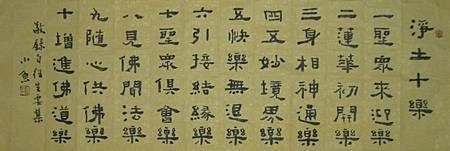 淨土十樂
一聖眾來迎樂
二蓮華初開樂
三身相神通樂
四五妙境界樂
五快樂無退樂
六引接結緣樂
七聖眾俱會樂
八見佛聞法樂
九隨心供佛樂
十增進佛道樂
敬錄自往生要集
小魚